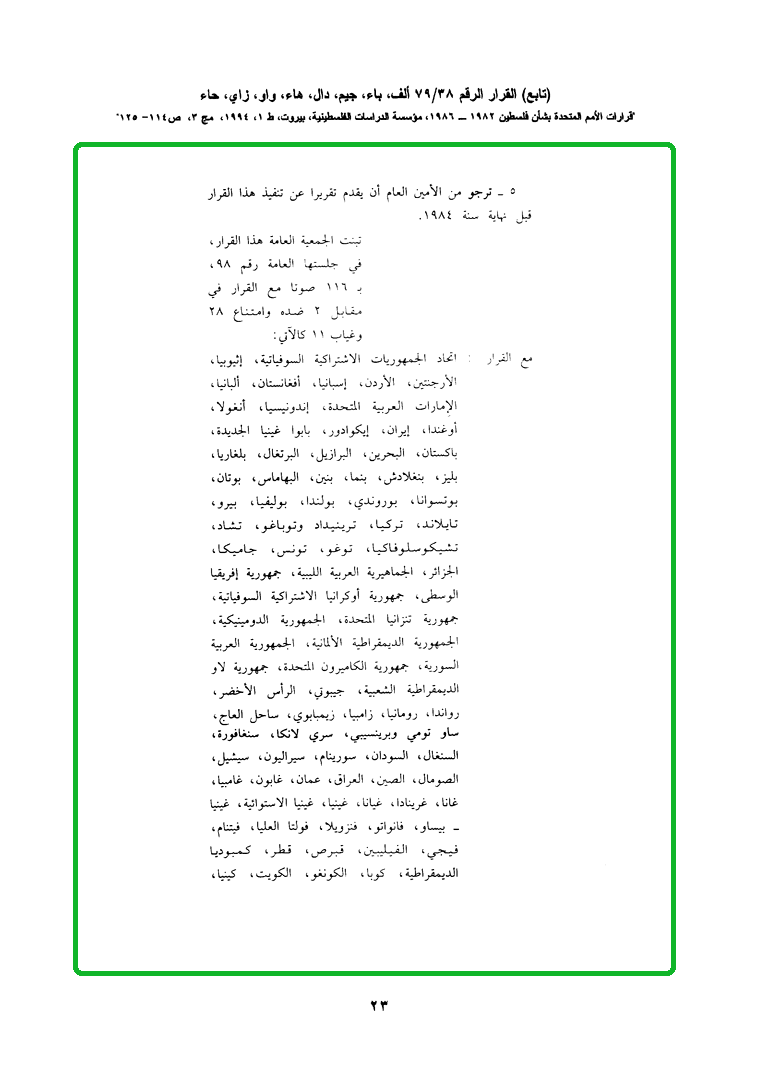 (تابع) القرار الرقم ٧٩/٣٨ ألف، باء، جيم، دال، هاء، واو، زاي، حاء
"قرارات الأمم المتحدة بشأن فلسطين ١٩٨٢ ــ ١٩٨٦، مؤسسة الدراسات الفلسطينية، بيروت، ط ١، ١٩٩٤، مج ٣، ص١١٤- ١٢٥"
٥ ـ ترجو من الأمين العام أن يقدم تقريرا عن تنفيذ هذا القرار
قبل نهاية سنة ١٩٨٤.
تبنت الجمعية العامة هذا القرار،
في جلستها العامة رقم ٩٨،
بـ ١١٦ صوتا مع القرار في
مقابل ٢ ضده وامتناع ٢٨
وغياب ١١ كالآتي:
مع القرار : اتحاد الجمهوريات الاشتراكية السوفياتية، إثيوبيا،
الأرجنتين، الأردن، إسبانيا، أفغانستان، ألبانيا،
الإمارات العربية المتحدة، إندونيسيا، أنغولا،
أوغندا، إيران، إيكوادور، بابوا غينيا الجديدة،
باكستان، البحرين، البرازيل، البرتغال، بلغاريا،
بليز، بنغلادش، بنما، بنين، البهاماس، بوتان،
بوتسوانا، بوروندي، بولندا، بوليفيا، بيرو،
تايلاند، تركيا، ترينيداد وتوباغو، تشاد،
تشيكوسلوفاكيا، توغو، تونس، جاميكا،
الجزائر، الجماهيرية العربية الليبية، جمهورية إفريقيا
الوسطى، جمهورية أوكرانيا الاشتراكية السوفياتية،
جمهورية تنزانيا المتحدة، الجمهورية الدومينيكية،
الجمهورية الديمقراطية الألمانية، الجمهورية العربية
السورية، جمهورية الكاميرون المتحدة، جمهورية لاو
الديمقراطية الشعبية، جيبوتي، الرأس الأخضر،
رواندا، رومانيا، زامبيا، زيمبابوي، ساحل العاج،
ساو تومي وبرينسيبي، سري لانكا، سنغافورة،
السنغال، السودان، سورينام، سيراليون، سيشيل،
الصومال، الصين، العراق، عمان، غابون، غامبيا،
غانا، غرينادا، غيانا، غينيا، غينيا الاستوائية، غينيا
ـ بيساو، فانواتو، فنزويلا، فولتا العليا، فيتنام،
فيجي، الفيليبين، قبرص، قطر، كمبوديا
الديمقراطية، كوبا، الكونغو، الكويت، كينيا،
٢٣